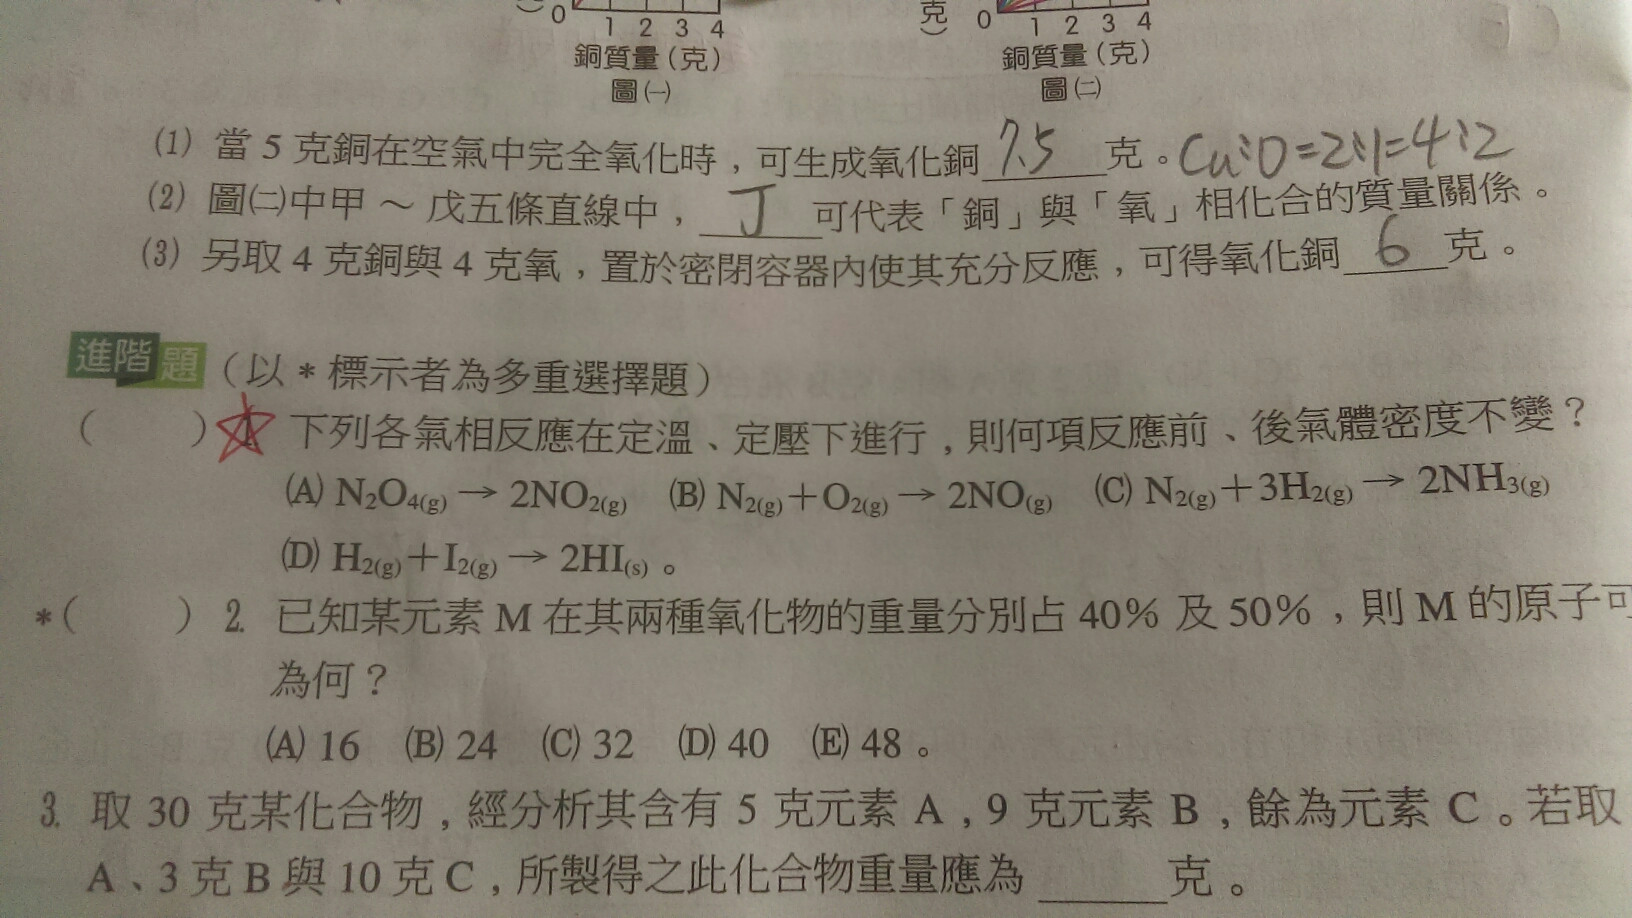 0 1 2 3 4 克) 0 1 2 3 4
銅質量(克) 銅質量(克)
圖㈠ 圖㈡
⑴ 當 5 克銅在空氣中完全氧化時,可生成氧化銅 7.5 克。Cu:O=2:1=4:2
⑵ 圖㈡中甲~戊五條直線中, 丁 可代表「銅」與「氧」相化合的質量關係。
⑶ 另取 4 克銅與 4 克氧,置於密閉容器內使其充分反應,可得氧化銅 6 克。
進階題(以*標示者為多重選擇題)
( ) 1. 下列各氣相反應在定溫、定壓下進行,則何項反應前、後氣體密度不變?
(A) N₂O₄(g) → 2NO₂(g) (B) N₂(g)+O₂(g) → 2NO(g) (C) N₂(g)+3H₂(g) → 2NH₃(g)
(D) H₂(g)+I₂(g) → 2HI(s)。
*( ) 2. 已知某元素 M 在其兩種氧化物的重量分別占 40% 及 50%,則 M 的原子可
為何?
(A) 16 (B) 24 (C) 32 (D) 40 (E) 48。
3. 取 30 克某化合物,經分析其含有 5 克元素 A,9 克元素 B,餘為元素 C。若取
A、3 克 B 與 10 克 C,所製得之此化合物重量應為 克。